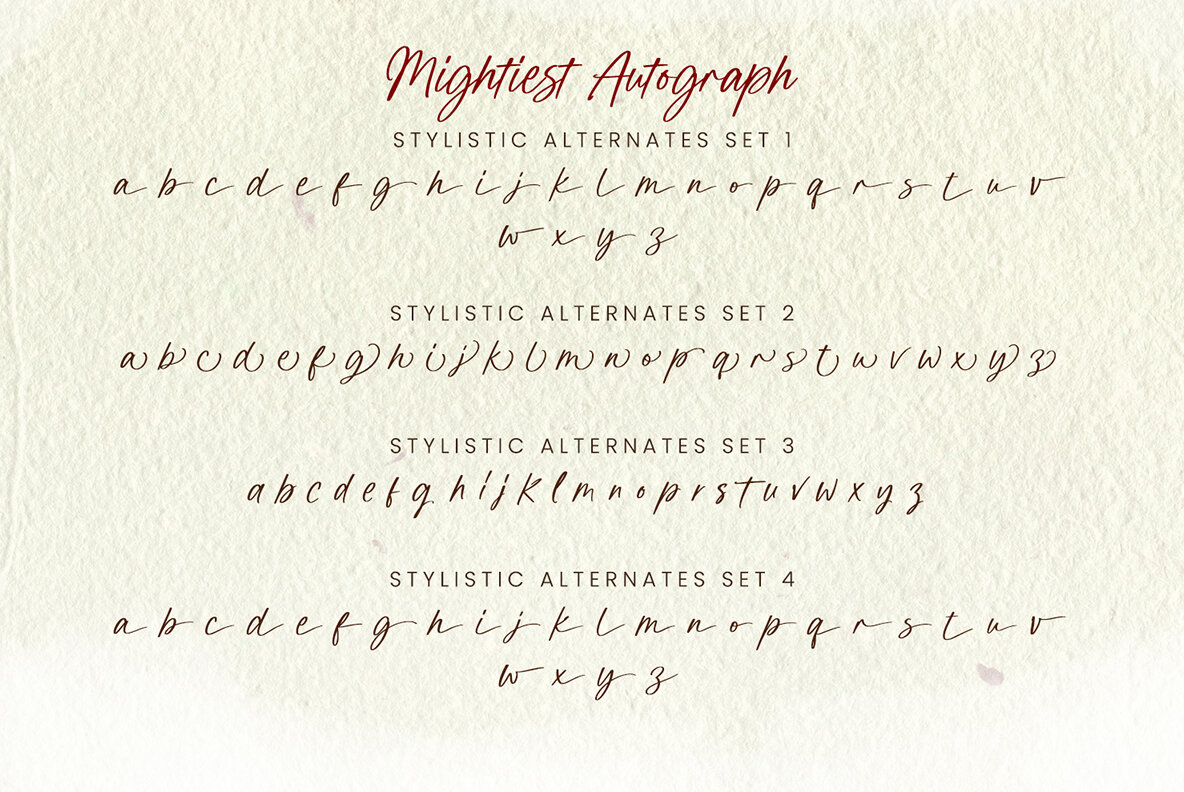 Mightiest Autograph
STYLISTIC ALTERNATES SET 1
a b c d e f g h i j k l m n o p q r s t u v
w x y z
STYLISTIC ALTERNATES SET 2
a b c d e f g h i j k l m n o p q r s t u v w x y z
STYLISTIC ALTERNATES SET 3
a b c d e f g h i j k l m n o p r s t u v w x y z
STYLISTIC ALTERNATES SET 4
a b c d e f g h i j k l m n o p q r s t u v
w x y z